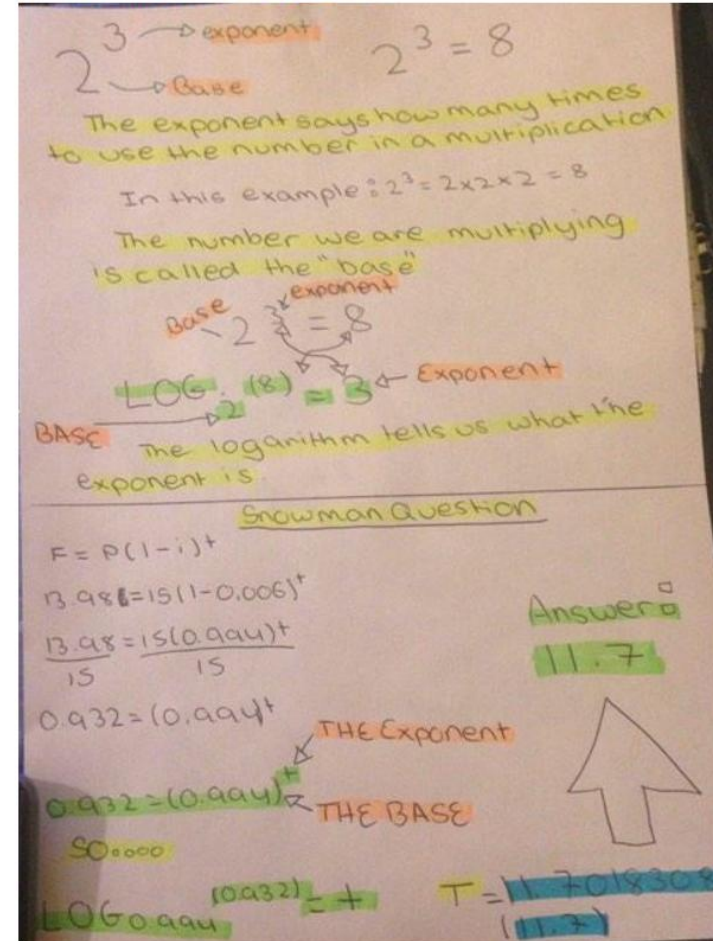 2³ → exponent
→ Base
2³ = 8
The exponent says how many times
to use the number in a multiplication
In this example : 2³ = 2x2x2 = 8
The number we are multiplying
is called the "base"
Base exponent
2³ = 8
LOG₂ (8) = 3 ← Exponent
BASE
The logarithm tells us what the
exponent is
Snowman Question
F = P(1-i)ᵗ
13.98 = 15(1-0.006)ᵗ
13.98 = 15(0.994)ᵗ
15 15
0.932 = (0.994)ᵗ
THE Exponent
0.932 = (0.994)ᵗ
THE BASE
SOoooo
LOG0.994 (0.932) = t
Answer:
11.7
T = 11.7018308
(11.7)